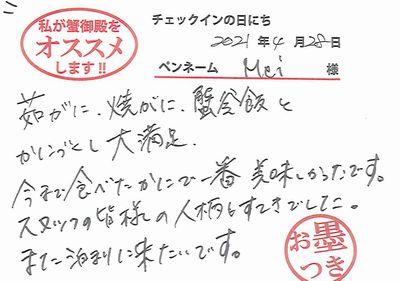 私が蟹御殿を
オススメ
します!!
チェックインの日にち
2021年4月28日
ペンネーム Mei 様
茹がに、焼がに、蟹釜飯と
かにづくし大満足。
今まで食べたかにで一番美味しかったです。
スタッフの皆様の人柄もすてきでした。
また泊りに来たいです。
お墨
つき